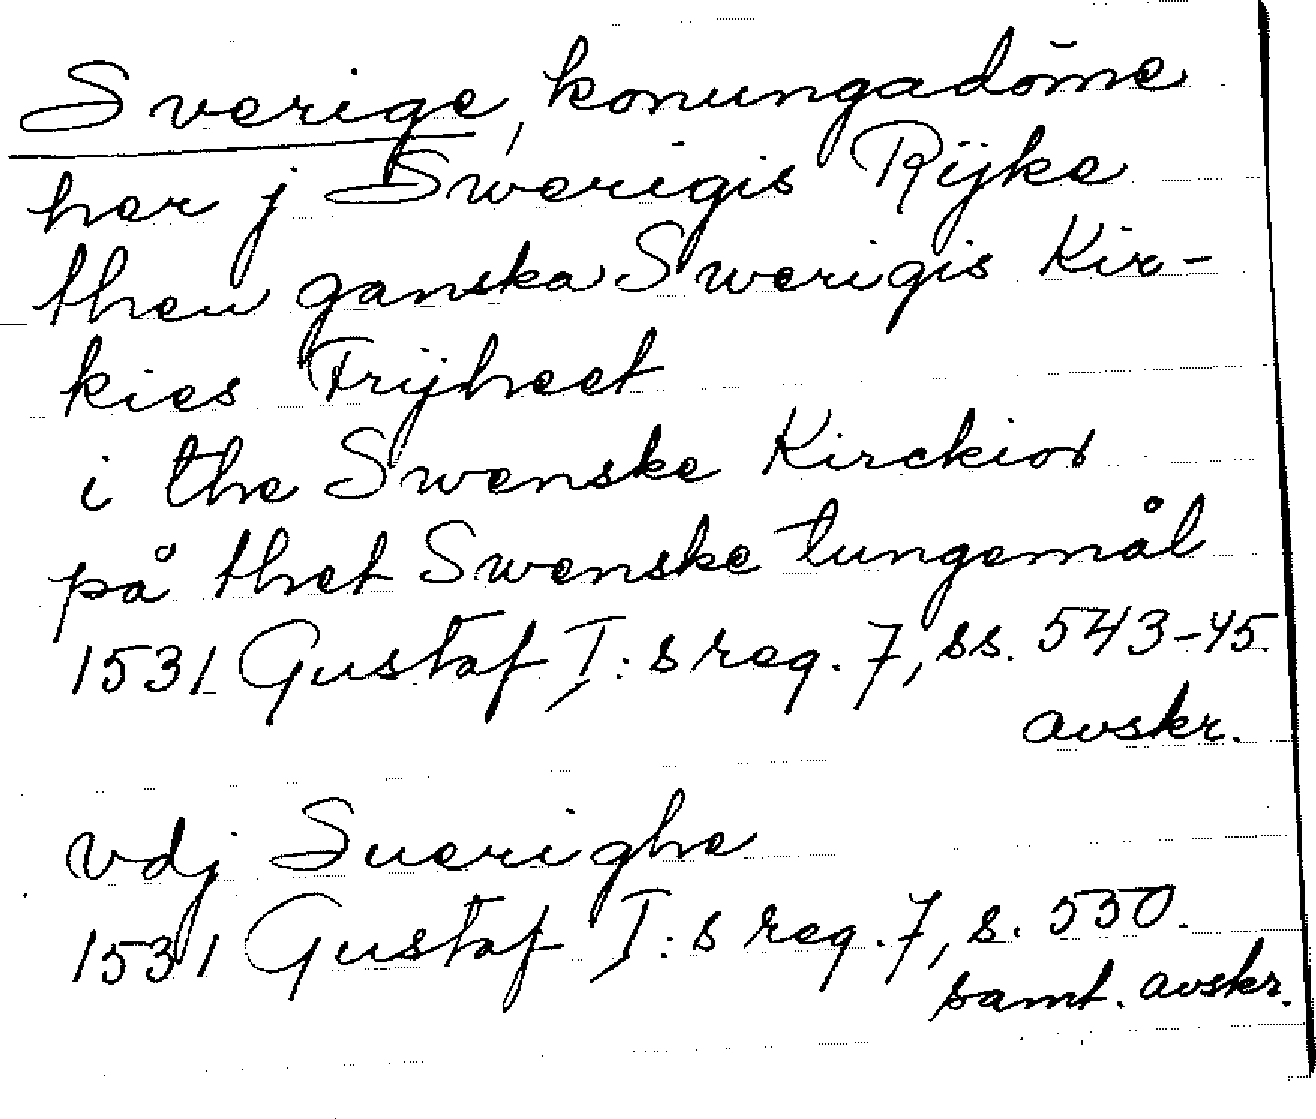 Sverige, konungadöme
her j Swerigis Rijke
then ganska Swerigis Kir-
kies Frijheet
i the Swenske Kirckior
på thet Swenske tungemål
1531 Gustaf I:s reg. 7, ss. 543-45.
avskr.
vdj Suerighe
1531 Gustaf I:s reg. 7, s. 550.
samt. avskr.